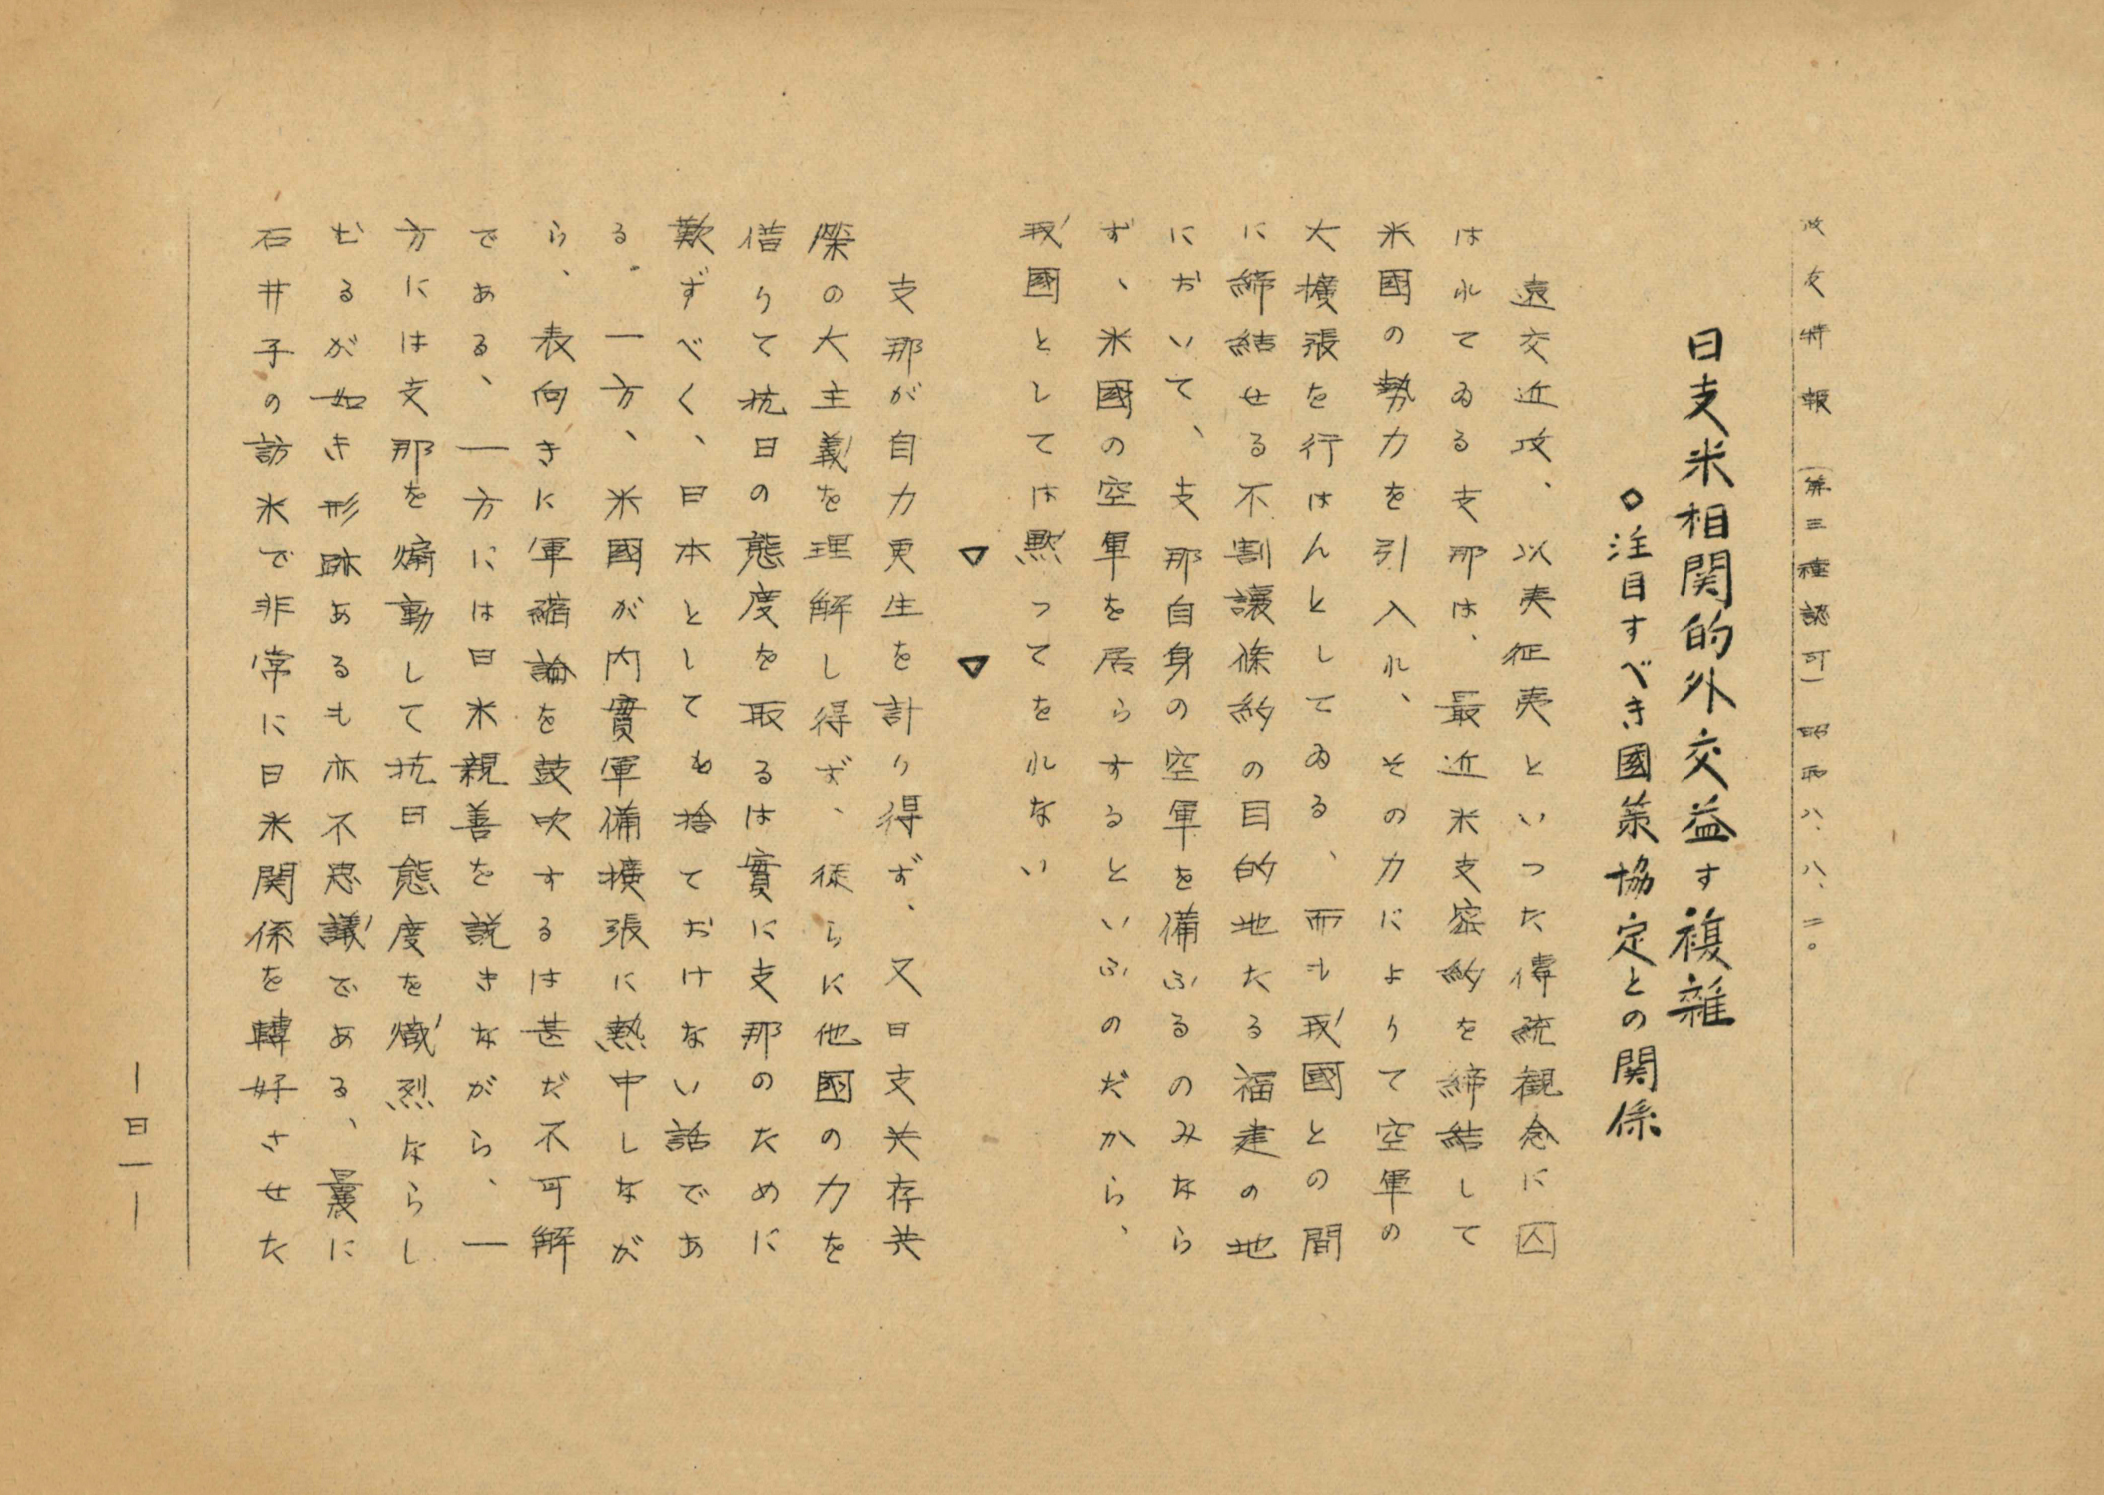 政友特報 (第三種認可) 昭和八、八、二〇
日支米相関的外交益す複雑
◇注目すべき國策協定との関係
遠交近攻、以夷征夷といった傳統観念に囚
はれてゐる支那は、最近米支密約を締結して
米國の勢力を引入れ、その力によりて空軍の
大擴張を行はんとしてゐる、而も我國との間
に締結せる不割讓條約の目的地たる福建の地
において、支那自身の空軍を備ふるのみなら
ず、米國の空軍を居らすするといふのだから、
我國としては黙ってをれない
▽　▽
支那が自力更生を計り得ず、又日支共存共
榮の大主義を理解し得ず、徒らに他國の力を
借りて抗日の態度を取るは實に支那のために
歎ずべく、日本としても捨ておけない話であ
る。一方、米國が内實軍備擴張に熱中しなが
ら、表向きに軍縮論を鼓吹するは甚だ不可解
である、一方には日米親善を説きながら、一
方には支那を煽動して抗日態度を熾烈ならし
むるが如き形跡あるも亦不思議である、曩に
石井子の訪米で非常に日米関係を轉好させた
—日一—